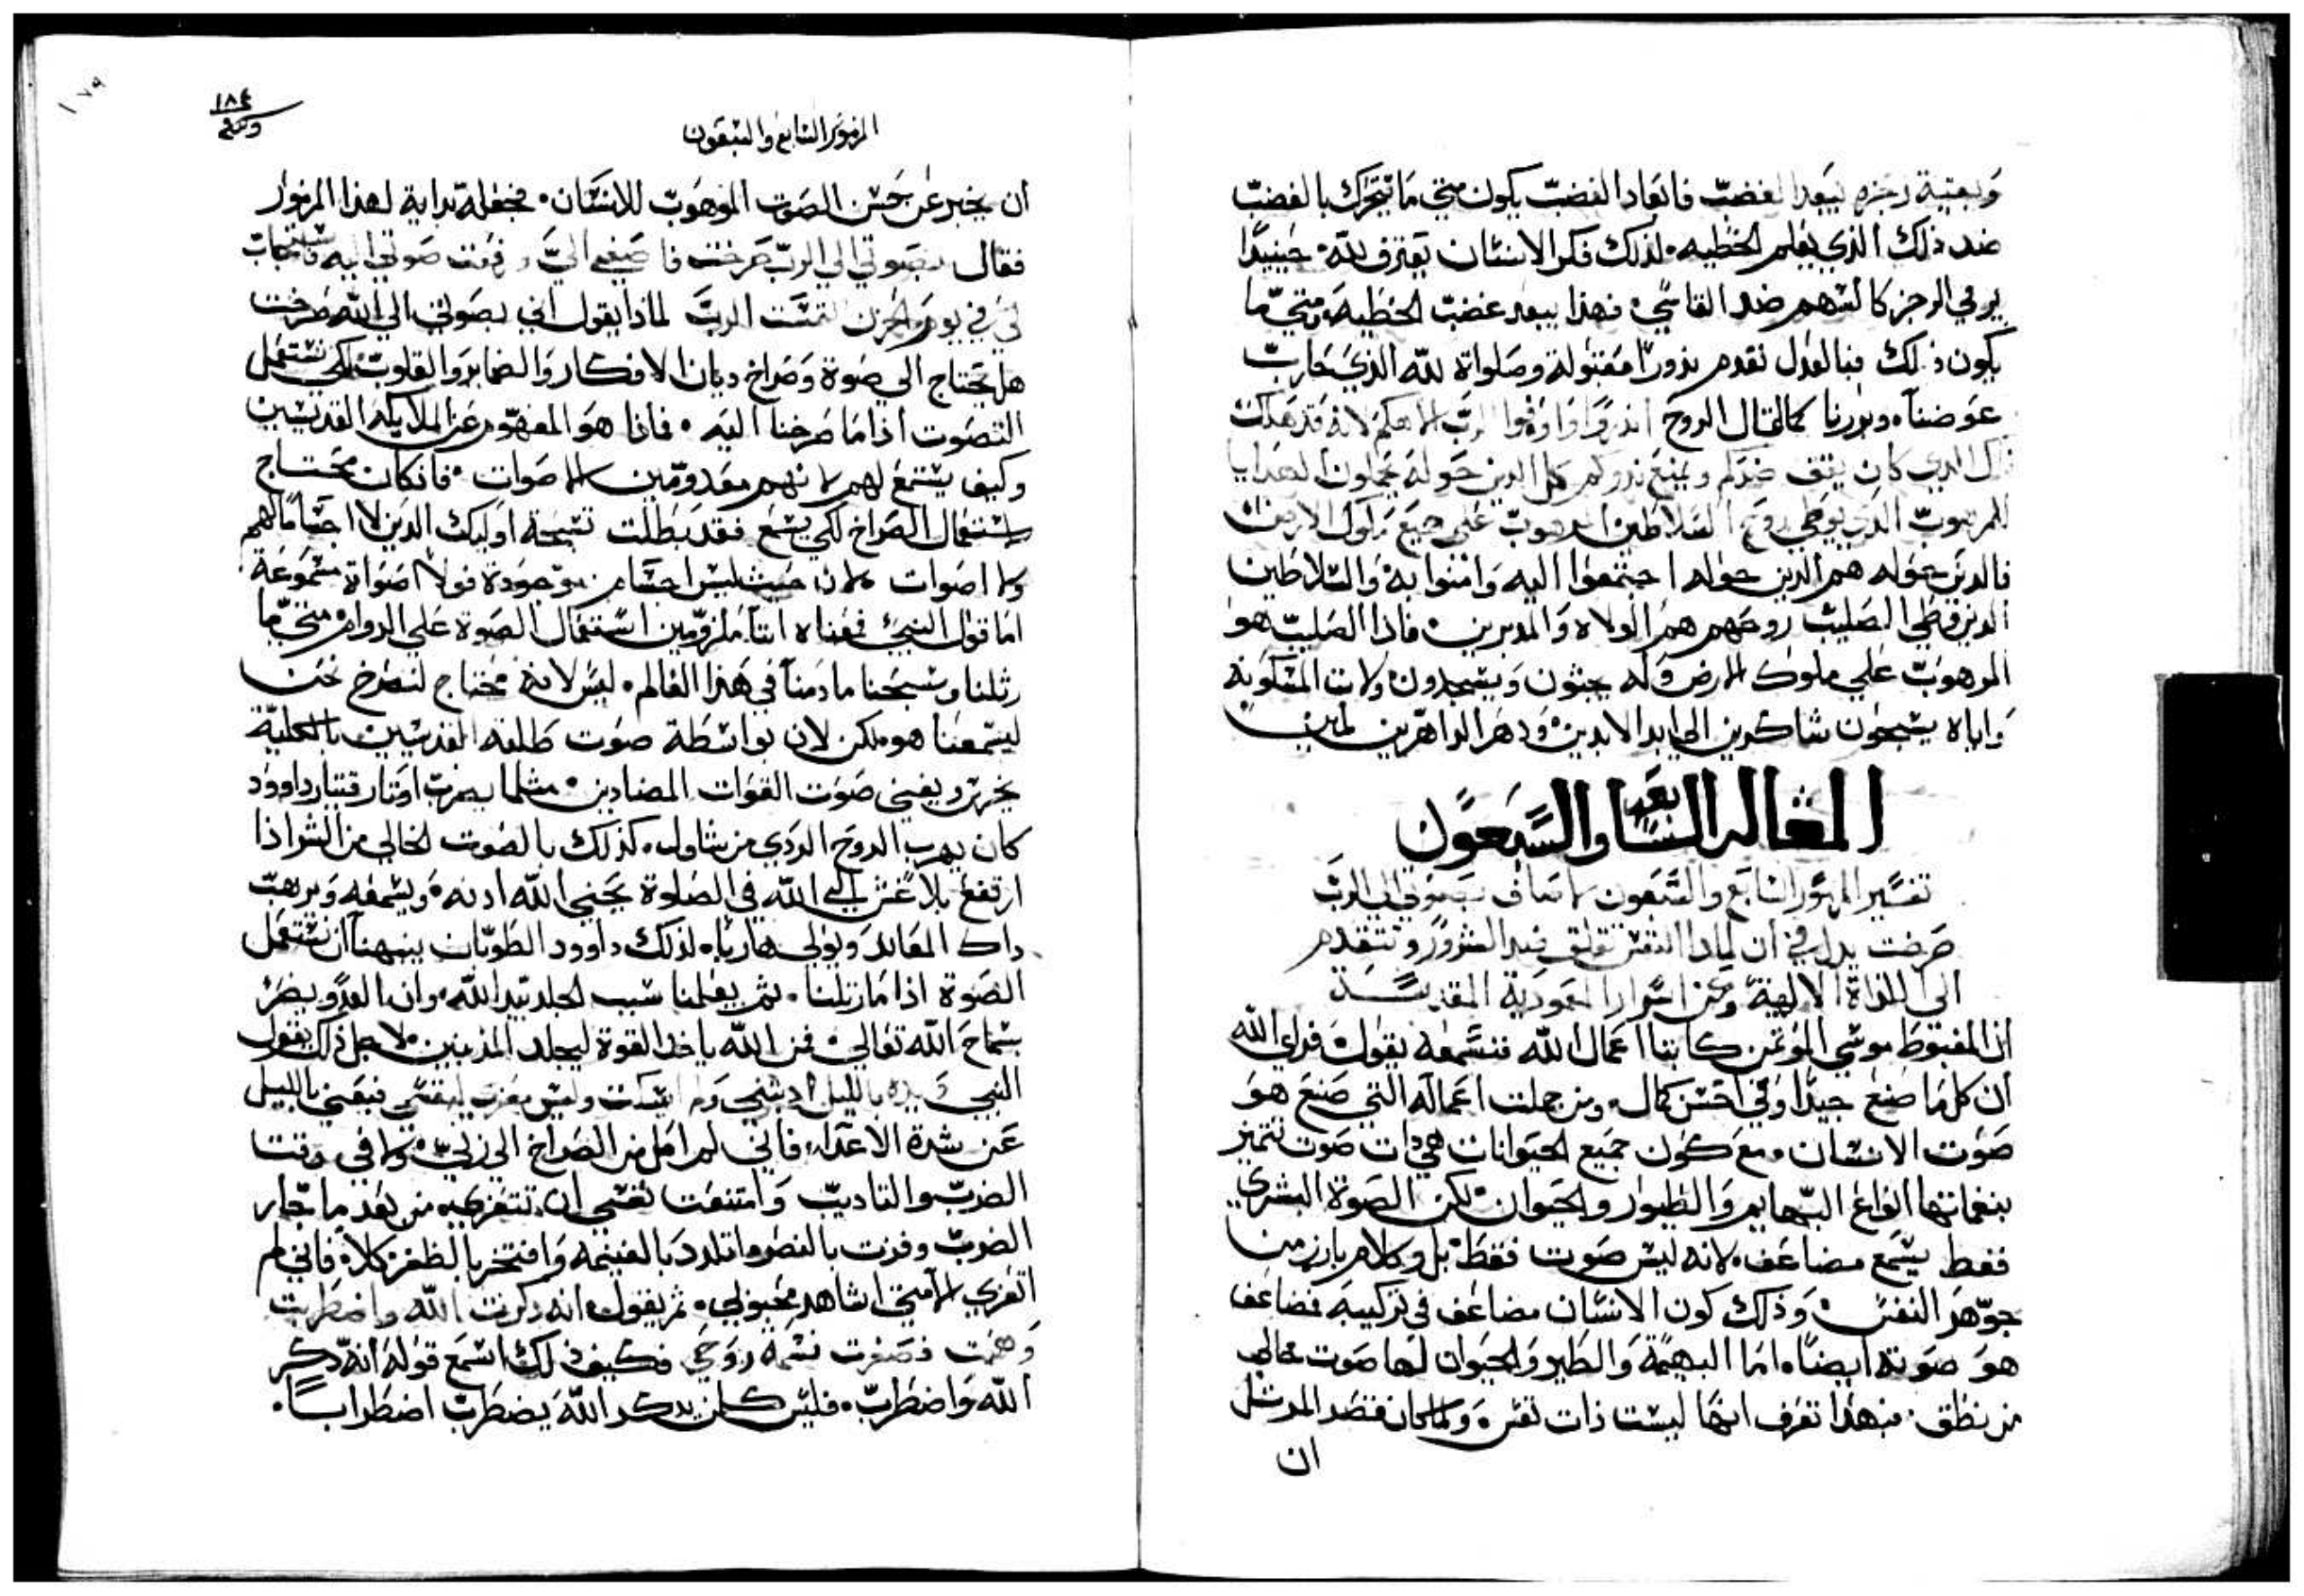 وبعتية رجزه يبعد الغضب فابعاد الغضب يكون متي ما يتحرك بالغضب
ضد ذلك الذي يعلم الخطيه. لذلك فكر الانسان يعترف لله. حينيدًا
يرمي الرجز كالسهم ضد القاسي. فهذا يبعد غضب الخطيه. ومتي ما
يكون ذلك فبالعدل نقدم نذورًا مقبولة وصلواة لله الذي حارب
عوضنآ. ونذورنا كما قال الروح انذروا واوفوا الرب الاهكم لانه قد هلك
ذاك الذي كان يقف ضدكم ويمنع نذوركم كل الذين حوله يحملون الهدايا
للمرهوب الذي يوطي روح السلاطين المرهوب علي جميع ملوك الارض
فالدين حوله هم الدين حوله اجتمعوا اليه وامنوا به والسلاطين
الدين وطي الصليب روحهم هم الولاه والمدبرين. فاذا الصليب هو
المرهوب علي ملوك الارض وله يجثون ويسجدون ولات المسكونه
واياه يسبحون شاكرين الي ابد الابدين ودهر الداهرين امين
المقاله السابعه والسبعون
تفسير المزمور السابع والسبعون لاصاف بصوتي الي الرب
صرخت يدل في ان لمادا النفس تقلق ضد الشرور وتتقدم
الي التلواة الالهية وعن اسرار المعمودية المقدسة
ان المغبوط موسي المؤتمن كاتبا اعمال الله فنسمعه يقول فراي الله
ان كل ما صنع جيدًا وفي احسن كمال. ومن جملت اعماله التي صنع هو
صوت الانسان. ومع كون جميع الحيوانات هي دات صوت تتميز
بنغماتها انواع البهايم والطيور والحيوان لكن الصوة البشري
فقط يسمع مضاعف. لانه ليس صوت فقط بل وكلام بارز من
جوهر النفس. وذلك كون الانسان مضاعف في تركيبه فضاعف
هو صوته ايضًا. اما البهيمة والطير والحيوان لها صوت خالي
من نطق. فبهذا تعرف انها ليست ذات نفس. ولما كان قصد المرتل
ان
المزمور السابع والسبعون
١٨٤
١٧٩
ان يخبر عن حسن الصوت الموهوب للانسان. فجعله بداية لهذا المزمور
فقال بصوتي الي الرب صرخت فاصغي الي ورفعت صوتي اليه فاستجاب
لي في يوم الحزن التمست الرب لماذا يقول اني بصوتي الي الله صرخت
هل يحتاج الي صوة وصراخ ديان الافكار والضماير والقلوب لكي نستعمل
التصوت اذا ما صرخنا اليه. فاذا هو المفهوم عن الملايكه القديسين
وكيف يستمع لهم لانهم معدومين الاصوات. فانكان محتاج
لاستعمال الصراخ لكي يسمع فقد بطلت تسبحة اوليك الدين لا اجسامًا لهم
ولا اصوات لان حيث ليس اجسام موجودة فولا اصواة مسموعة
اما قول النبي فمعناه اننا ملزومين استعمال الصوة علي الدوام متي ما
رتلنا وسبحنا ما دمنآ في هذا العالم. ليس لانه محتاج لنصرخ نحن
ليسمعنا هو لكن لان بواسطة صوت طلبة القديسين بالكلية
يخرس ويفني صوت القوات المضادين. مثلما بضرب اوتار قيتار داوود
كان يهرب الروح الردي من شاول. كذلك بالصوت الخالي من الشر اذا
ارتفع بلا غش الي الله في الصلوة يحني الله ادنه ويسمعه ويرهب
داك المعاند ويولي هاربًا. لذلك داوود الطوبان ينبهنا ان نستعمل
الصوة اذا ما رتلنا. ثم يعلمنا سبب الجلد بيد الله. وان العدو يضر
بسماح الله تعالي. فمن الله ياخد القوة ليجلد المذنبين. لاجل ذلك يقول
النبي ويده بالليل ادبتني ولم اسكت وليس بعزي لنفسي فبعني بالليل
عن شدة الاعدا. فاني لم امل من الصراخ الي ربي. ولا في وقت
الضرب والتاديب وامتنعت نفسي ان تتعزي. من بعد ما جار
الضرب وفزت بالنصر واتلدد بالغنيمه وافتخر بالظفر كلا. فاني لم
اتعزي الا متي اشاهد محبوبي. ثم يقول انه ذكرت الله واضطربت
وهمت فصغرت نسمة روحي فكيف ذلك اسمع قوله انه ذكر
الله واضطرب. فليس كلمن يدكر الله يضطرب اضطرابًا.